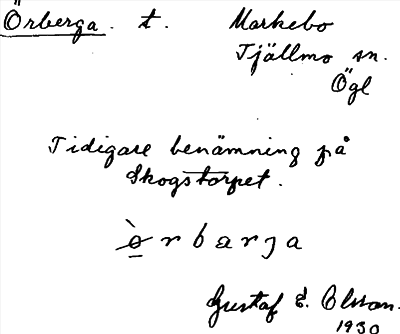 Örberga. t. Markebo
Tjällmo sn.
Ögl
Tidigare benämning på
Skogstorpet.
ò̲rbarȷa
Gustaf E. Olsson.
1930